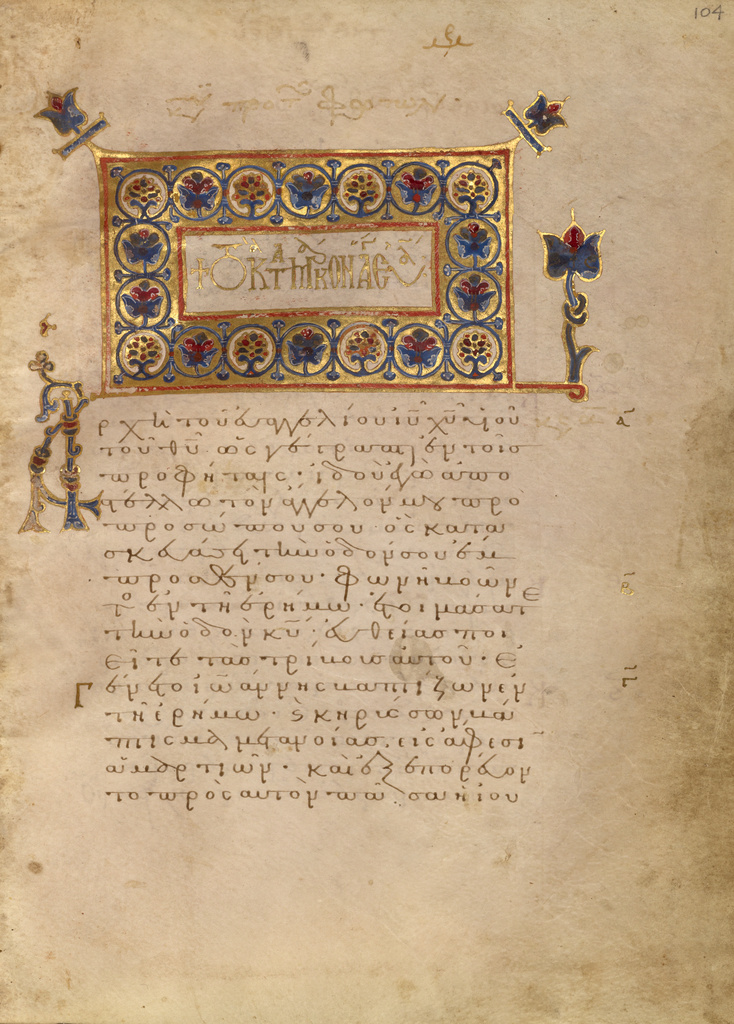 104
ρχὴ τοῦ εὐαγγελίου ἰῦ χῦ υἱοῦ
τοῦ θῦ ὡς γέγραπται ἐν τοῖς
προφήταις· ἰδοὺ ἐγὼ ἀπο
στελλω τὸν ἄγγελόν μου πρὸ
προσώπου σου ὃς κατα
σκευάσει τὴν ὁδόν σου ἔμ
προσθεν σου· φωνὴ βοῶν
το ἐν τῇ ἐρήμω· ἑτοιμάσατε
τὴν ὁδὸν κῦ· εὐθείας ποι
εῖτε τὰς τρίβους αὐτοῦ· Ἐ
γένετο ἰωάννης βαπτίζων ἐν
τῇ ἐρήμω· καὶ κηρύσσων βά
πτισμα μετανοίας εἰς ἄφεσιν
ἁμαρτιῶν· καὶ ἐξεπορεύον
το πρὸς αυτὸν πᾶσα ἡ ἰου